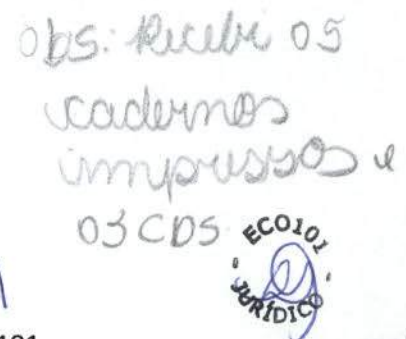 Obs: Recebi 05
cadernos
impressos e
03 CDS
ECO101
JURÍDICO